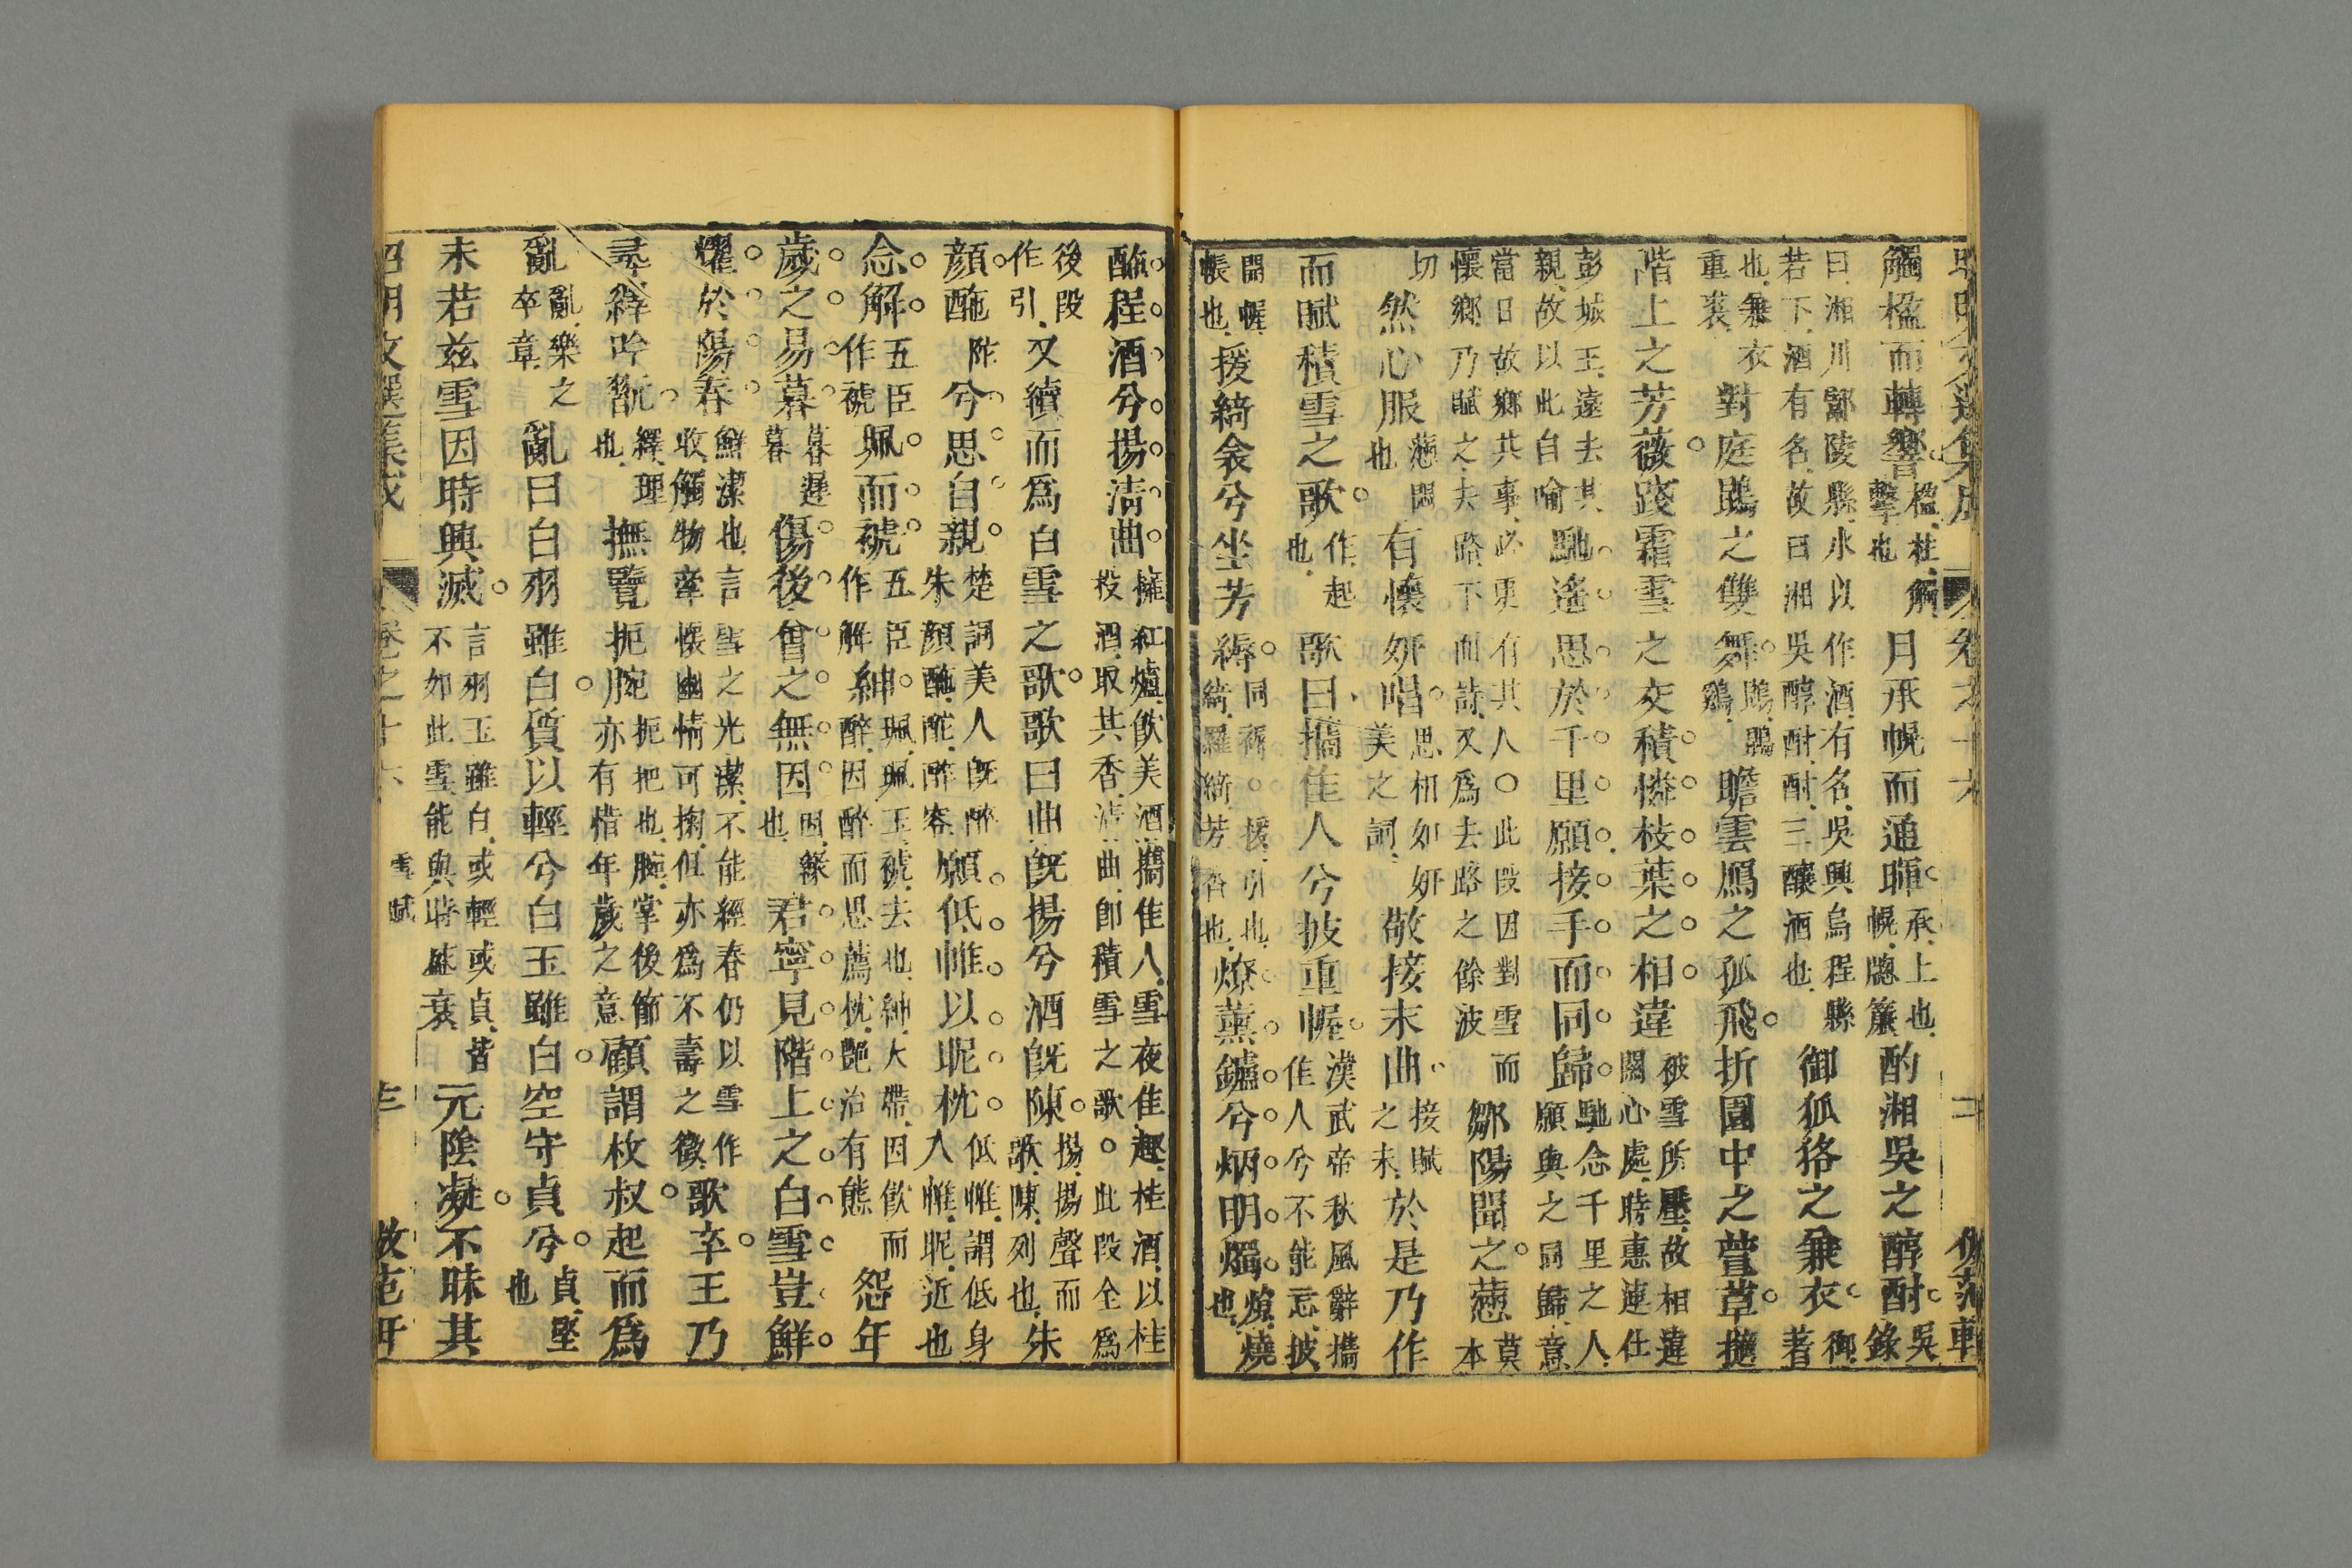 昭明文選集成 卷之十六 二 倣范軒
觸楹而轉響楹柱觸擊也月承幌而通暉承上也幌牕簾也酌湘吳之醇酎吳錄
曰湘川酃陵縣水以作酒有名吳興烏程縣若下酒有名故曰湘吳醇酎酎三釀酒也御狐狢之兼衣御著
也兼衣重裘對庭鵾之雙舞鵾鵾鷄瞻雲鴈之孤飛折園中之萱草擿
階上之芳薇踐霜雪之交積憐枝葉之相違被雪所壓故相違關心處時惠連仕
彭城王遠去其親故以此自喻馳遙思於千里願接手而同歸馳念千里之人願與之同歸意
當日故鄉共事必更有其人○此段因對雪而懷鄉乃賦之夫路下而詩又爲去路之餘波鄒陽聞之懣莫本
切然心服懣悶也有懷妍唱思相如妍美之詞敬接末曲接賦之末於是乃作
而賦積雪之歌作起也歌曰攜佳人兮披重幄漢武帝秋風辭攜佳人兮不能忘披
開幄帳也援綺衾兮坐芳縟同褥○援引也綺羅綺芳香也燎薰鑪兮炳明燭燎燒也
酏程酒兮揚清曲擁紅爐飲美酒攜佳人雪夜佳趣桂酒以桂投酒取其香清曲卽積雪之歌○此段全爲
後段作引又續而爲白雪之歌歌曰曲旣揚兮酒旣陳揚揚聲而歌陳列也朱
顏酏酡兮思自親楚詞美人旣醉朱顏酏酡醉容願低帷以昵枕低帷謂低身入帷昵近也
念解五臣作褫珮而褫五臣作解紳珮珮玉褫去也紳大帶因飲而醉因醉而思薦枕艶冶有態怨年
歲之易暮暮遲暮傷後會之無因因緣也君寧見階上之白雪豈鮮
耀於陽春鮮潔也言雪之光潔不能經春仍以雪作收觸物牽懷幽情可掬但亦爲不壽之徵歌卒王乃
尋繹吟翫繹理也撫覽扼腕扼把也腕掌後節亦有惜年歲之意顧謂枚叔起而爲
亂亂樂之卒章亂曰白羽雖白質以輕兮白玉雖白空守貞兮貞堅也
未若茲雪因時興滅言羽玉雖白或輕或貞皆不如此雪能與時盛衰元陰凝不昧其
昭明文選集成 卷之十六 雪賦 三 倣范軒